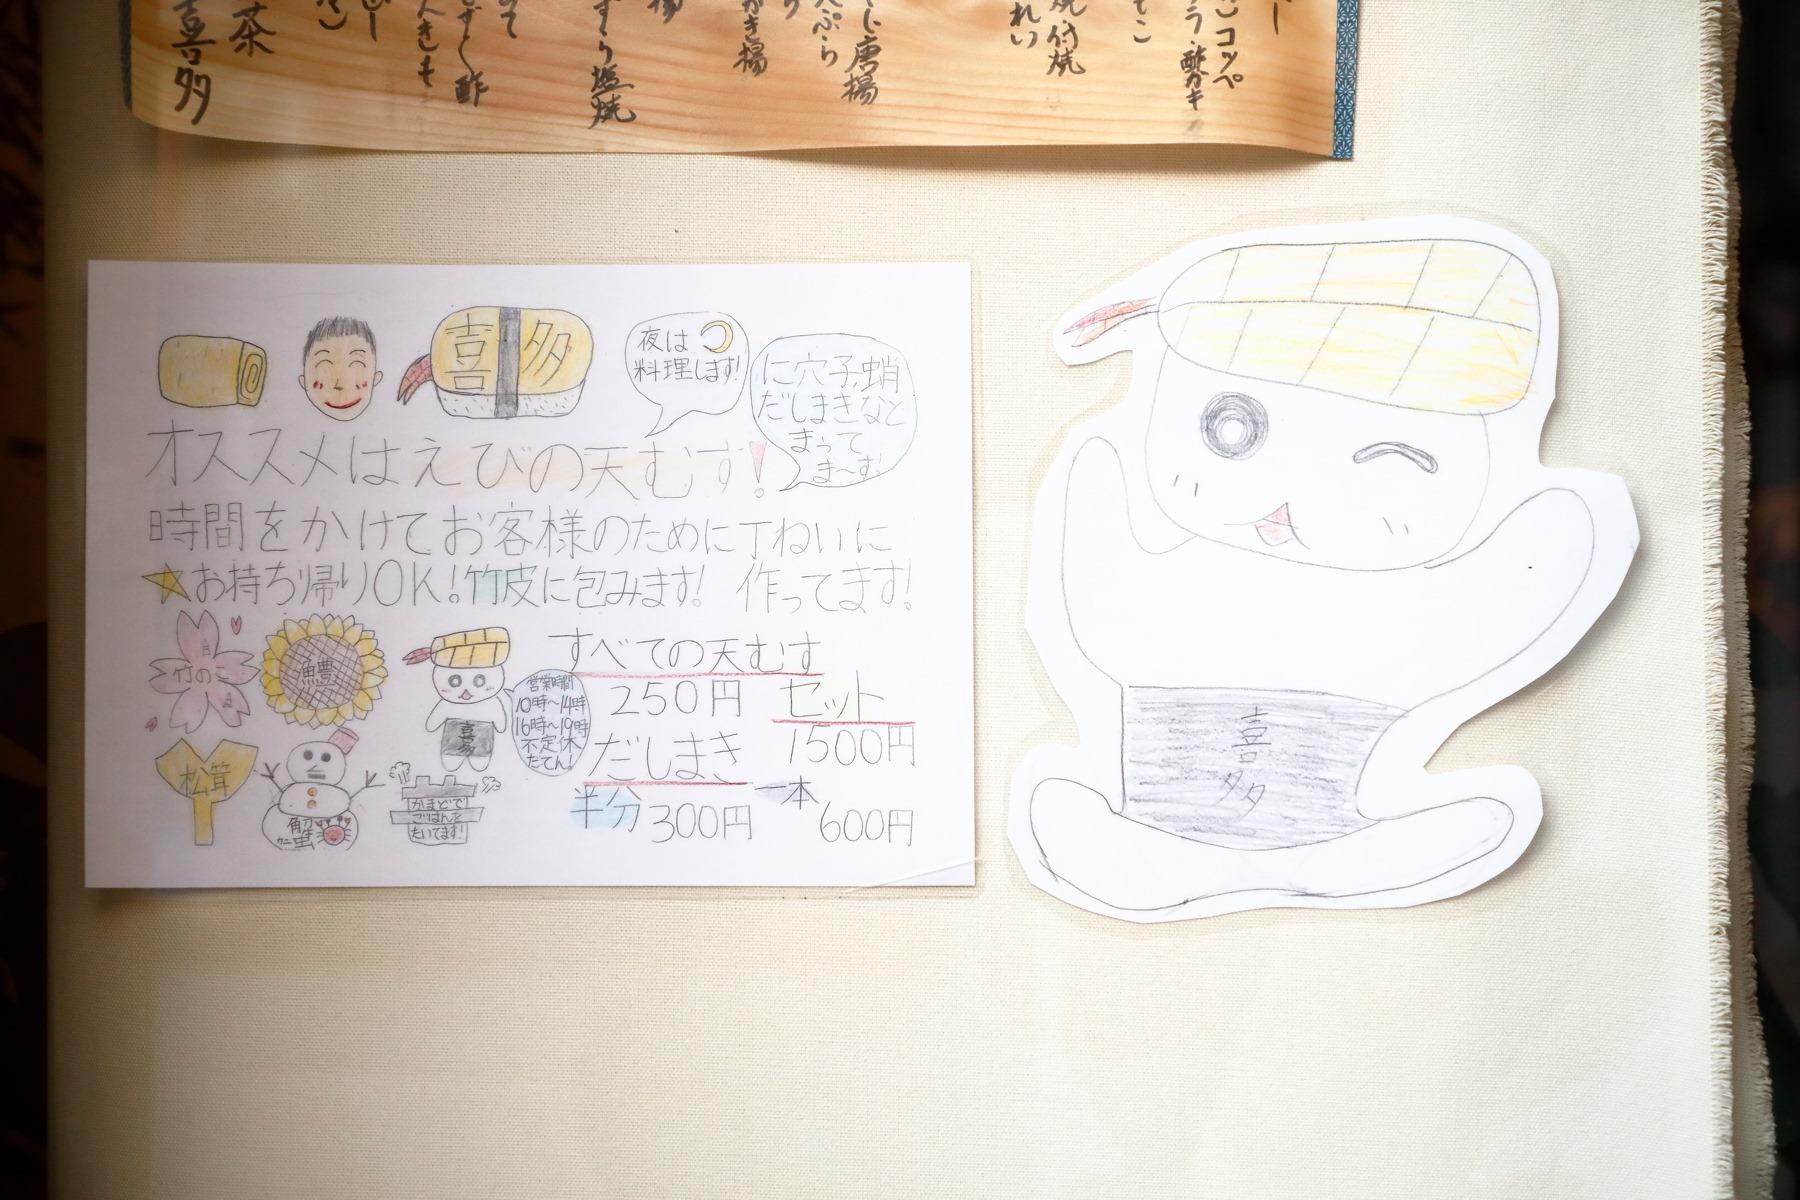 茶
喜多
酢
すり塩焼
かき揚
天ぷら
唐揚
焼付焼
コッペ
酢ガキ
喜多
夜は
料理します!
に穴子、蛸
だしまきなど
まって
ま〜す!
オススメはえびの天むす!
時間をかけてお客様のために丁ねいに
★お持ち帰りOK!竹皮に包みます! 作ってます!
竹のこ
鱧
喜多
営業時間
10時〜14時
16時〜19時
不定休
だてん!
すべての天むす
250円
セット
1500円
だしまき
半分 300円
一本 600円
松茸
カニ 蟹
かまどで
ごはんを
たいてます!
喜多